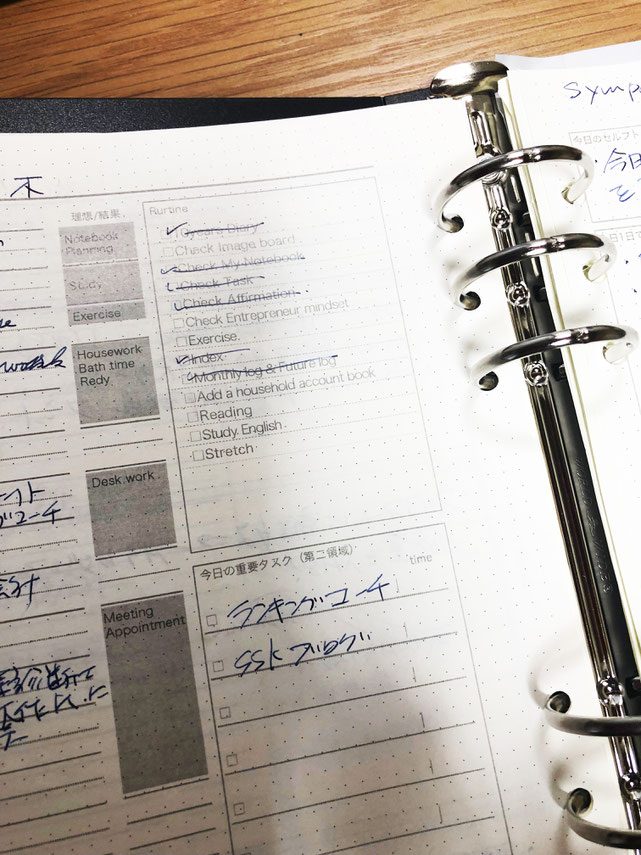 木
理想/結果
Notebook
Planning
Study
Exercise
Housework
Bath time
Redy
Desk work
Meeting
Appointment
Runtine
Check Image board
Check My Notebook
Check Task
Check Affirmation
Check Entrepreneur mindset
Exercise
Index
Monthly log & Future log
Add a household account book
Reading
Study English
Stretch
今日の重要タスク(第二領域) time
ランキングコーチ
SSKブログ
コーチ
会計
symp
今日のセルフ
今日
を